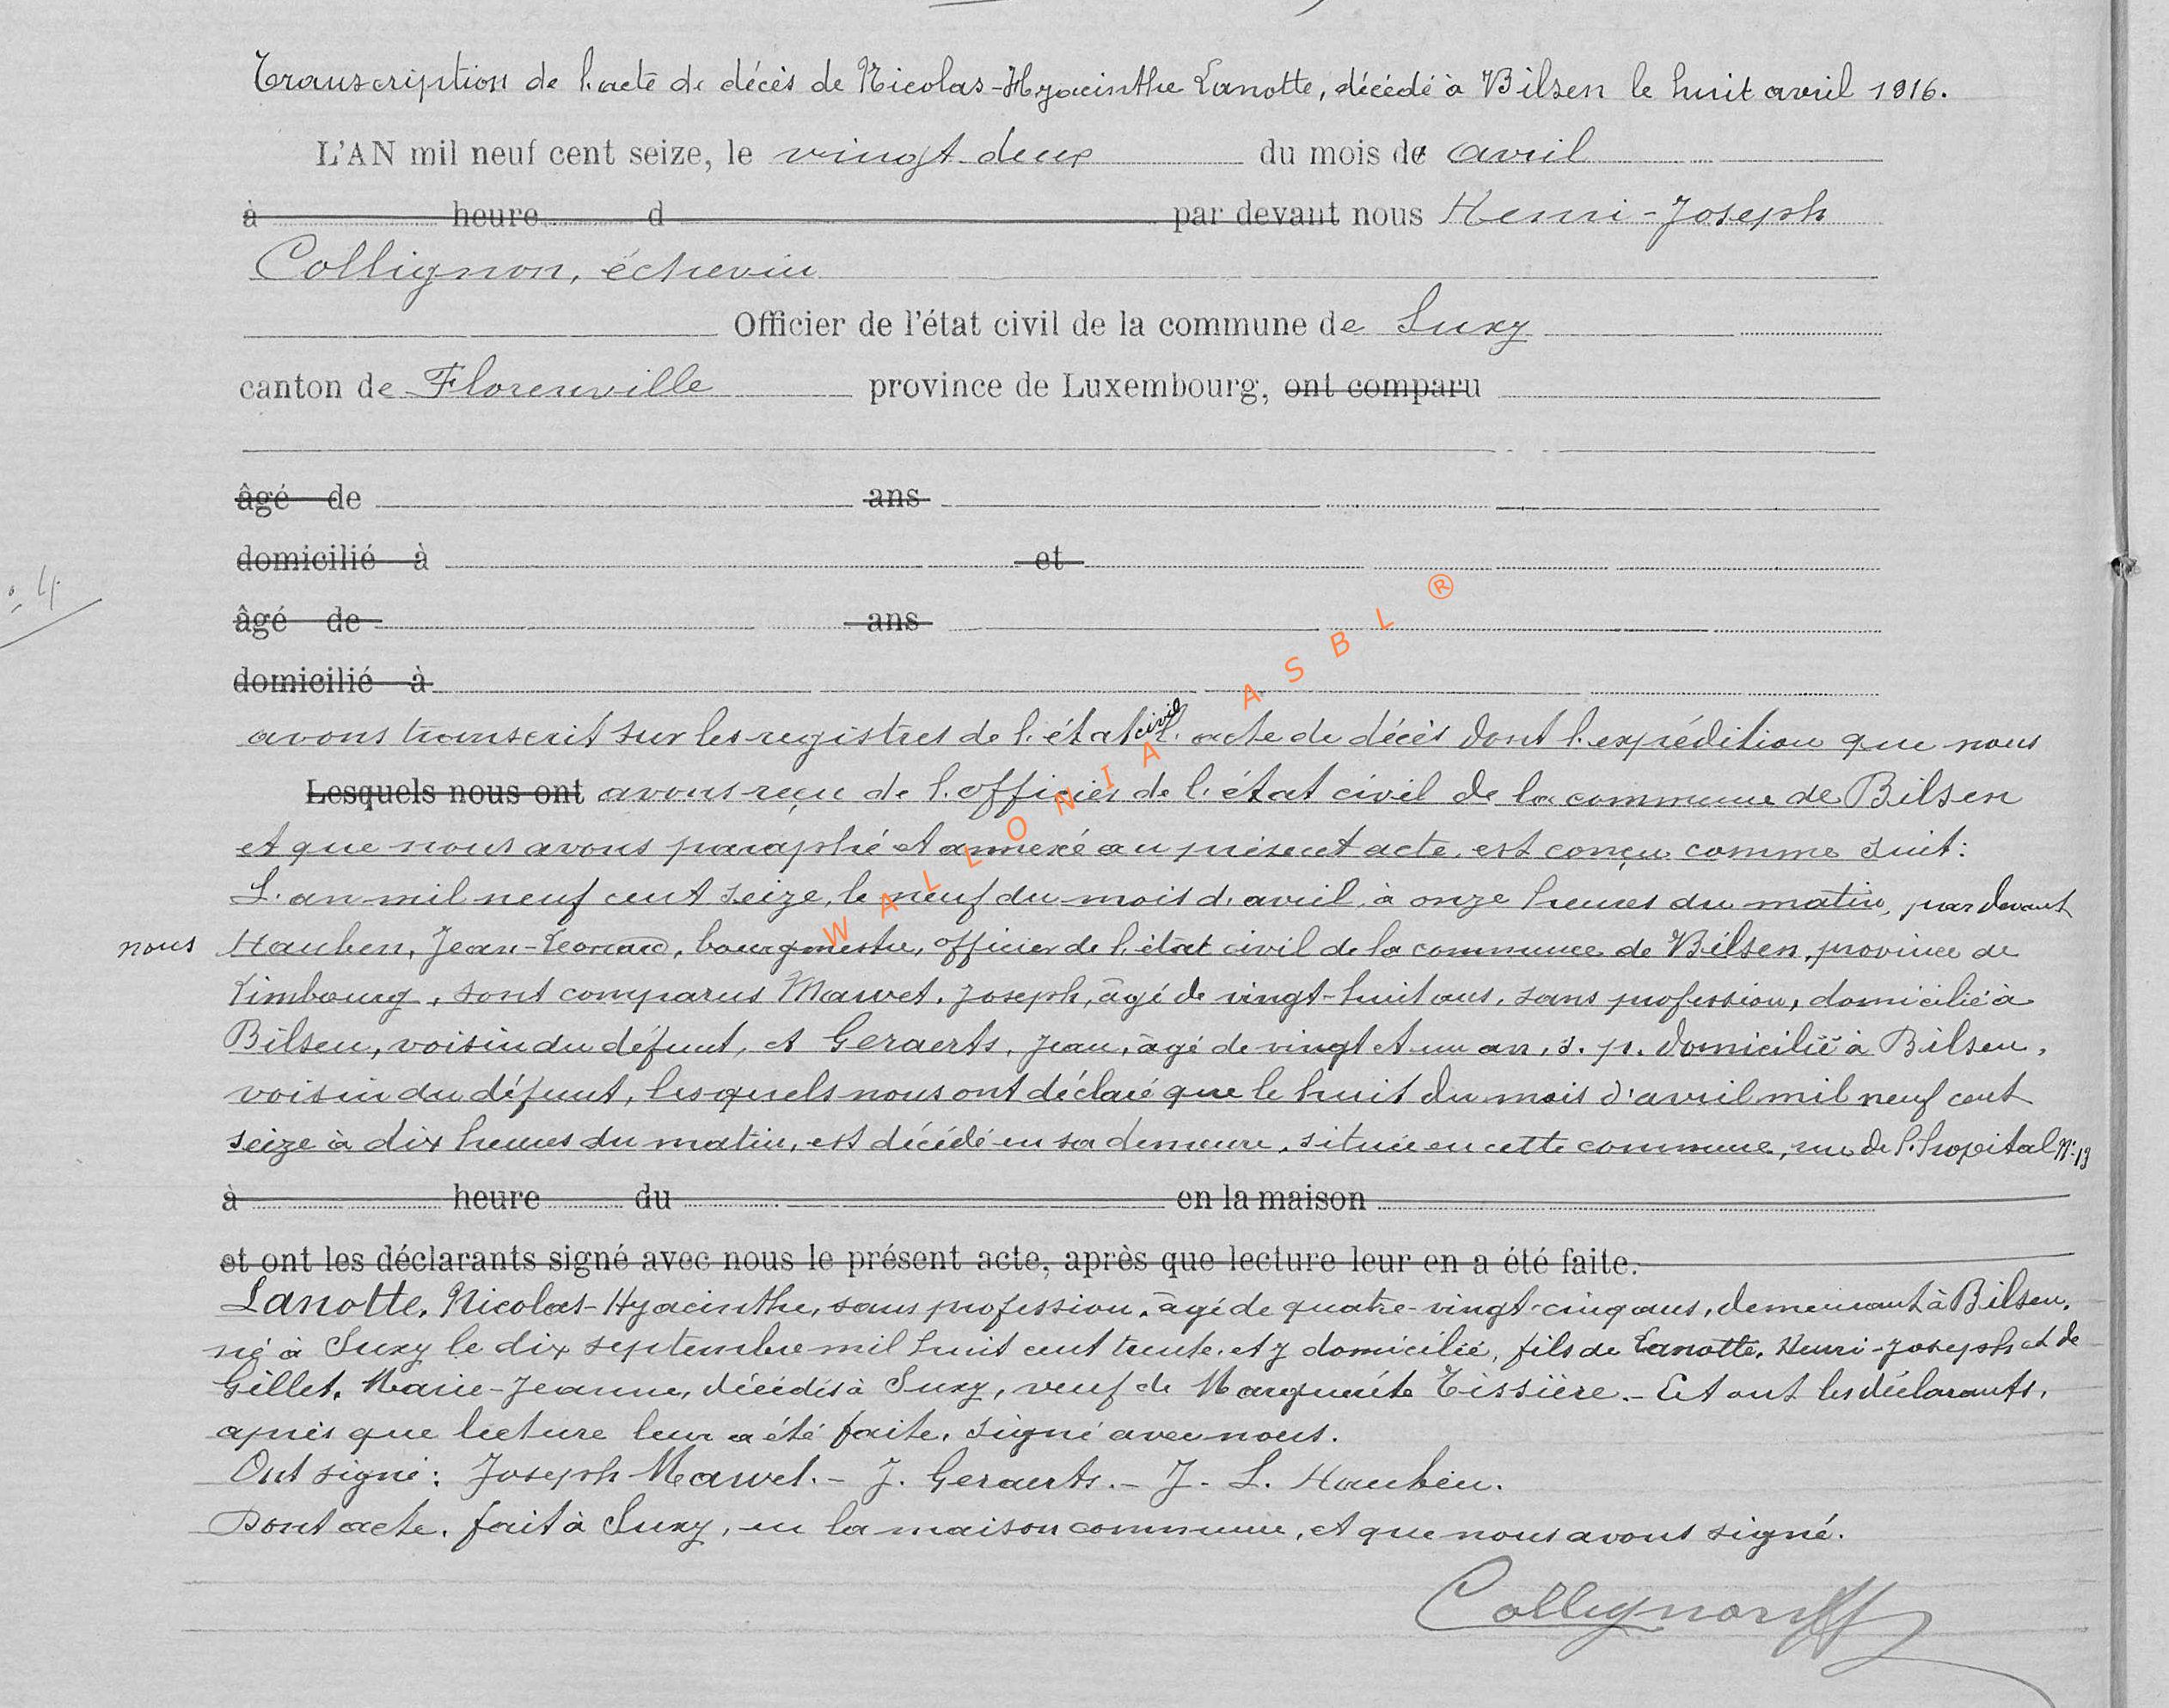 Transcription de l'acte de décès de Nicolas-Hyacinthe Lanotte, décédé à Bilsen le huit avril 1916.
L'AN mil neuf cent seize, le vingt-deux du mois de avril
à heure d par devant nous Henri-Joseph
Collignon, échevin
Officier de l'état civil de la commune de Suxy
canton de Florenville province de Luxembourg, ont comparu
âgé de ans
domicilié à et
: 4
âgé de ans
domicilié à
avons transcrit sur les registres de l'état civil l'acte de décès dont l'expédition que nous
Lesquels nous ont avons reçu de l'officier de l'état civil de la commune de Bilsen
et que nous avons paraphé et annexé au présent acte, est conçu comme suit:
L'an mil neuf cent seize, le neuf du mois d'avril, à onze heures du matin, par devant
nous Hauben, Jean-Leonard, bourgmestre, officier de l'état civil de la commune de Bilsen, province de
Limbourg, sont comparus Mawet, Joseph, âgé de vingt-huit ans, sans profession, domicilié à
Bilsen, voisin du défunt, et Geraerts, Jean, âgé de vingt et un an, s. p. domicilié à Bilsen,
voisin du défunt, lesquels nous ont déclaré que le huit du mois d'avril mil neuf cent
seize à dix heures du matin, est décédé en sa demeure, située en cette commune, rue de l'hopital N° 13
à heure du en la maison
et ont les déclarants signé avec nous le présent acte, après que lecture leur en a été faite.
Lanotte, Nicolas-Hyacinthe, sans profession, âgé de quatre-vingt-cinq ans, demeurant à Bilsen,
né à Suxy le dix septembre mil huit cent trente, et y domicilié, fils de Lanotte, Henri-Joseph et de
Gillet, Marie-Jeanne, décédés à Suxy, veuf de Marguerite Tissière.- Et ont les déclarants,
après que lecture leur a été faite, signé avec nous.
Ont signé: Joseph Mawet.- J. Geraerts.- J. L. Hauben.
Dont acte, fait à Suxy, en la maison commune, et que nous avons signé.
Collignon
WALLONIA ASBL ®